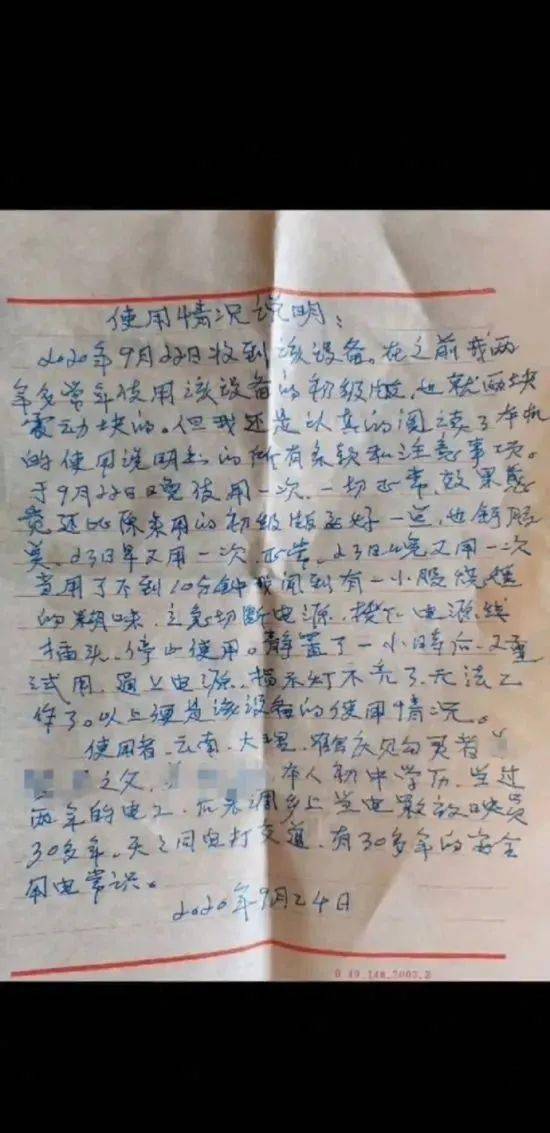 使用情况说明:
2020年9月22日收到该设备。在之前我两
年多常年使用该设备的初级版,也就两块
震动块的。但我还是认真的阅读了本机
的使用说明书的所有条款和注意事项。
于9月22日晚使用一次,一切正常,效果感
觉还比原来用的初级版还好一些,也舒服
些。23日早又用一次,正常,23日晚又用一次
当用了不到10分钟时闻到有一小股烧
的糊味,立急切断电源,拨下电源线
插头,停止使用。静置了一小时后,又重
试用,通上电源,指示灯不亮了,无法工
作了。以上便是该设备的使用情况。
使用者,云南,大理,购买者
之父,本人初中学历,当过
两年的电工,后来调乡上当电影放映员
30多年,天天同电打交道,有30多年的安全
用电常识。
2020年9月24日